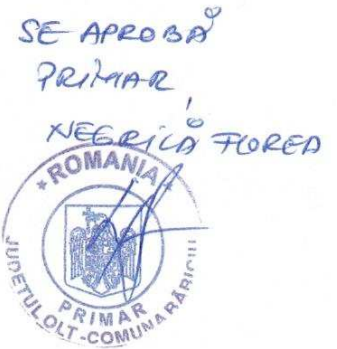 SE APROBĂ
PRIMAR,
NEGRILĂ FLOREA
* ROMANIA *
PRIMAR
JUDETUL OLT - COMUNA BĂRĂȘTII